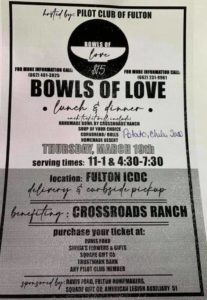 hosted by: PILOT CLUB OF FULTON
BOWLS OF
love
$15
FOR MORE INFORMATION CALL:
(662) 401-3025
FOR MORE INFORMATION CALL:
(662) 231-9961
BOWLS OF LOVE
lunch & dinner
each ticket will include:
HANDMADE BOWL BY CROSSROADS RANCH
SOUP OF YOUR CHOICE
CORNBREAD / ROLLS
HOMEMADE DESSERT
Potato, Chili,
THURSDAY, MARCH 19th
serving times: 11-1 & 4:30-7:30
location: FULTON ICDC
delivery & curbside pickup
benefiting: CROSSROADS RANCH
purchase your ticket at:
DAVIS FORD
SHEILA'S FLOWERS & GIFTS
SQUARE GIFT CO
TRUSTMARK BANK
ANY PILOT CLUB MEMBER
sponsored by: DAVIS FORD, FULTON HOMEMAKERS,
SQUARE GIFT CO, AMERICAN LEGION AUXILIARY 51